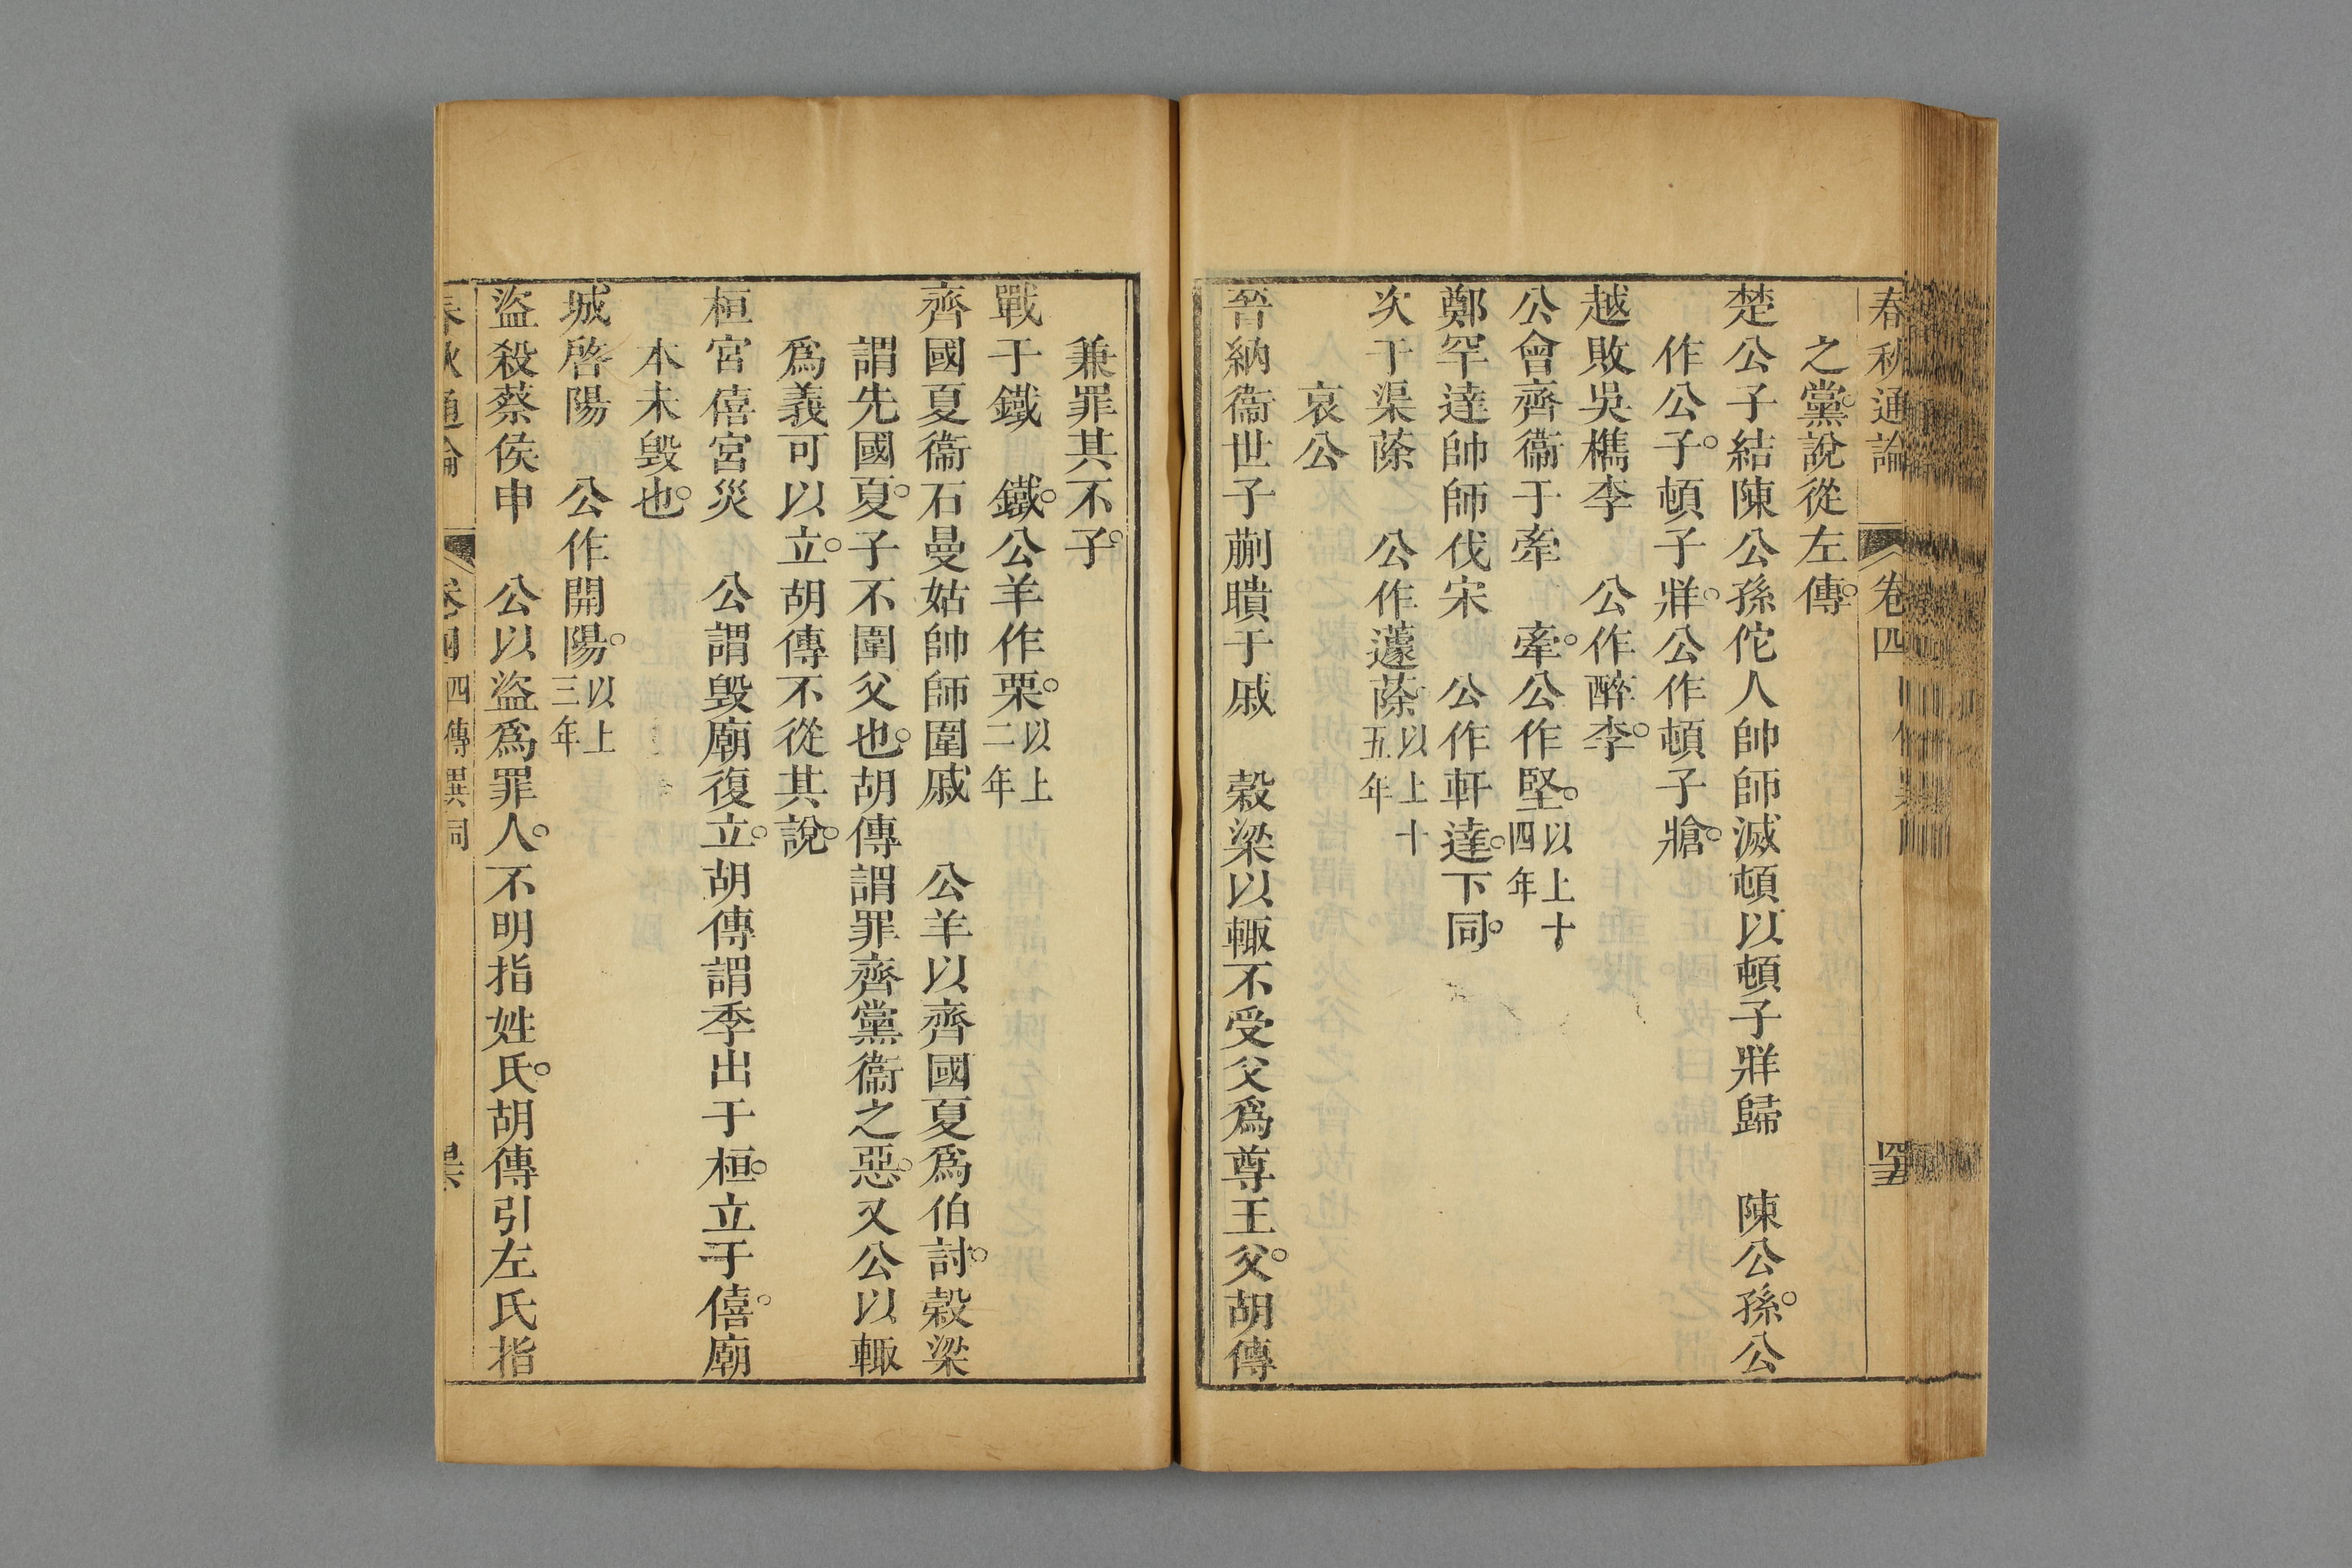 春秋通論 卷四
之黨說從左傳。
楚公子結陳公孫佗人帥師滅頓以頓子牂歸 陳公孫。公
作公子。頓子牂。公作頓子牄。
越敗吳檇李 公作醉李。
公會齊衞于牽 牽。公作堅。以上十四年
鄭罕達帥師伐宋 公作軒達。下同。
次于渠蒢 公作蘧蒢以上十五年
哀公
晉納衞世子蒯聵于戚 穀梁以輒不受父爲尊王父。胡傳
兼罪其不子。
戰于鐵 鐵。公羊作栗。以上二年
齊國夏衞石曼姑帥師圍戚 公羊以齊國夏爲伯討。穀梁
謂先國夏。子不圍父也。胡傳謂罪齊黨衞之惡。又公以輒
爲義可以立。胡傳不從其說。
桓宮僖宮災 公謂毀廟復立。胡傳謂季出于桓。立于僖。廟
本未毀也。
城啓陽 公作開陽。以上三年
盜殺蔡侯申 公以盜爲罪人。不明指姓氏。胡傳引左氏指
春秋通論 卷四 四傳異同